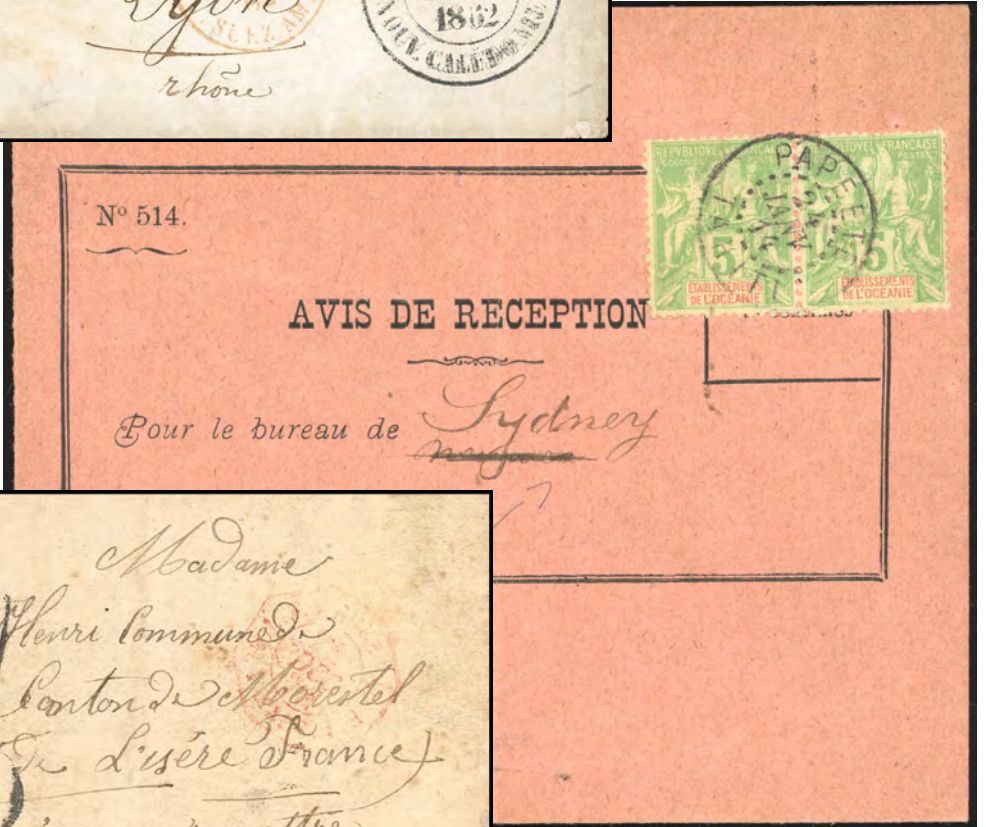 Lyon
rhône
SUEZ AM
1862
NOUV. CALÉDONIE
No 514.
AVIS DE RECEPTION
Pour le bureau de Sydney
REPUBLIQUE FRANCAISE
POSTES
5
5
ETABLISSEMENTS
DE L'OCEANIE
ETABLISSEMENTS
DE L'OCEANIE
PAPEETE
24
JANV
TAITI
Madame
Henri Commune de
Canton de Morestel
De L'isére France)